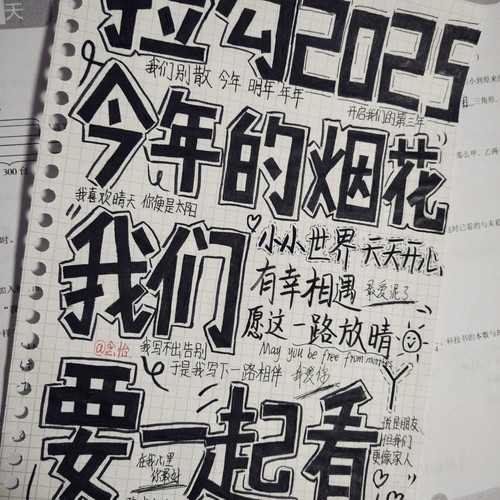 拉勾2025
我们别散 今年 明年 年年
开启我们的第三年
今年的烟花
我喜欢晴天 你便是太阳
我们
小小世界 天天开心
有幸相遇 最爱泥了
愿这一路放晴
May you be free from
@念怡 我写不出告别
于是我写下一路相伴 我爱你
要一起看
说是朋友
但我们
更像家人
在我心里
你最好
300 台
三角形
那么甲、乙两
科技书的本数与
天